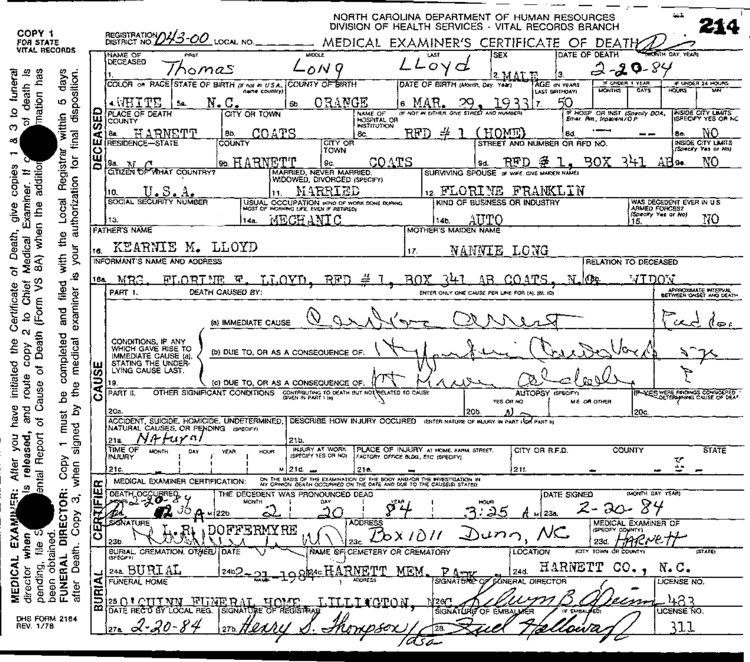 COPY 1
FOR STATE
VITAL RECORDS
NORTH CAROLINA DEPARTMENT OF HUMAN RESOURCES
DIVISION OF HEALTH SERVICES - VITAL RECORDS BRANCH
214
REGISTRATION DISTRICT NO. 043-00 LOCAL NO.
MEDICAL EXAMINER'S CERTIFICATE OF DEATH
DECEASED
NAME OF DECEASED FIRST MIDDLE LAST SEX DATE OF DEATH (MONTH, DAY, YEAR)
1. Thomas Long Lloyd 2. MALE 3. 2-20-84
COLOR OR RACE STATE OF BIRTH (If not in U.S.A., name country) COUNTY OF BIRTH DATE OF BIRTH (Month, Day, Year) AGE (IN YEARS LAST BIRTHDAY) IF UNDER 1 YEAR MONTHS DAYS IF UNDER 24 HOURS HOURS MIN
4. WHITE 5a. N.C. 5b. ORANGE 6. MAR. 29, 1933 7. 50
PLACE OF DEATH COUNTY CITY OR TOWN NAME OF HOSPITAL OR INSTITUTION (IF NOT IN EITHER, GIVE STREET AND NUMBER) IF HOSP. OR INST (Specify DOA, INSIDE CITY LIMITS (SPECIFY YES OR NO)
8a. HARNETT 8b. COATS 8c. RFD # 1 (HOME) 8d. 8e. NO
RESIDENCE-STATE COUNTY CITY OR TOWN STREET AND NUMBER OR RFD NO. INSIDE CITY LIMITS (Specify Yes or No)
9a. N.C. 9b. HARNETT 9c. COATS 9d. RFD # 1, BOX 341 AB 9e. NO
CITIZEN OF WHAT COUNTRY? MARRIED, NEVER MARRIED, WIDOWED, DIVORCED (SPECIFY) SURVIVING SPOUSE (IF WIFE, GIVE MAIDEN NAME)
10. U.S.A. 11. MARRIED 12. FLORINE FRANKLIN
SOCIAL SECURITY NUMBER USUAL OCCUPATION (KIND OF WORK DONE DURING MOST OF WORKING LIFE, EVEN IF RETIRED) KIND OF BUSINESS OR INDUSTRY WAS DECEDENT EVER IN U.S. ARMED FORCES? (Specify Yes or No)
13. 14a. MECHANIC 14b. AUTO 15. NO
FATHER'S NAME MOTHER'S MAIDEN NAME
16. KEARNIE M. LLOYD 17. NANNIE LONG
INFORMANT'S NAME AND ADDRESS RELATION TO DECEASED
18a. MRS. FLORINE F. LLOYD, RFD # 1, BOX 341 AB COATS, N. WIDOW
CAUSE
PART 1. DEATH CAUSED BY: ENTER ONLY ONE CAUSE PER LINE FOR (a), (b), (c) APPROXIMATE INTERVAL BETWEEN ONSET AND DEATH
(a) IMMEDIATE CAUSE arrest
CONDITIONS, IF ANY WHICH GAVE RISE TO IMMEDIATE CAUSE (a), STATING THE UNDERLYING CAUSE LAST.
(b) DUE TO, OR AS A CONSEQUENCE OF:
19. (c) DUE TO, OR AS A CONSEQUENCE OF:
PART II. OTHER SIGNIFICANT CONDITIONS CONTRIBUTING TO DEATH BUT NOT RELATED TO CAUSE GIVEN IN PART I (a) AUTOPSY (SPECIFY) YES OR NO ME OR OTHER IF YES WERE FINDINGS CONSIDERED IN DETERMINING CAUSE OF DEATH
20a. 20b. No 20c.
ACCIDENT, SUICIDE, HOMICIDE, UNDETERMINED, NATURAL CAUSES, OR PENDING (SPECIFY) DESCRIBE HOW INJURY OCCURED (ENTER NATURE OF INJURY IN PART I OR PART II)
21a. Natural 21b.
TIME OF INJURY MONTH DAY YEAR HOUR INJURY AT WORK (SPECIFY YES OR NO) PLACE OF INJURY AT HOME, FARM, STREET, FACTORY, OFFICE BLDG., ETC (SPECIFY) CITY OR R.F.D. COUNTY STATE
21c. M 21d. 21e. 21f.
CERTIFIER
MEDICAL EXAMINER CERTIFICATION: ON THE BASIS OF THE EXAMINATION OF THE BODY AND/OR THE INVESTIGATION IN MY OPINION DEATH OCCURRED ON THE DATE AND DUE TO THE CAUSE(S) STATED
DEATH OCCURRED THE DECEDENT WAS PRONOUNCED DEAD MONTH DAY YEAR HOUR DATE SIGNED (MONTH, DAY, YEAR)
2-20-84 A M 22b. 2 20 84 3:25 A M 23a. 2-20-84
SIGNATURE ADDRESS MEDICAL EXAMINER OF (SPECIFY COUNTY)
23b. L. R. DOFFERMYRE 23c. Box 1011 Dunn, NC 23d. HARNETT
BURIAL
BURIAL, CREMATION, OTHER (SPECIFY) DATE NAME OF CEMETERY OR CREMATORY LOCATION (CITY, TOWN OR COUNTY) (STATE)
24a. BURIAL 24b. 2-21-1984 24c. HARNETT MEM. PARK 24d. HARNETT CO., N.C.
FUNERAL HOME ADDRESS SIGNATURE OF FUNERAL DIRECTOR LICENSE NO.
25. O'QUINN FUNERAL HOME, LILLINGTON, N.C. 483
DATE REC'D BY LOCAL REG. SIGNATURE OF REGISTRAR SIGNATURE OF EMBALMER (IF EMBALMED) LICENSE NO.
27a. 2-20-84 27b. Henry S. Thompson/dsa 28. Holloway 311
DHS FORM 2164
REV. 1/78
MEDICAL EXAMINER: After you have initiated the Certificate of Death, give copies 1 & 3 to funeral
director when is released, and route copy 2 to Chief Medical Examiner. If of death is
pending, file ental Report of Cause of Death (Form VS 8A) when the addition mation has
been obtained.
FUNERAL DIRECTOR: Copy 1 must be completed and filed with the Local Registrar within 5 days
after Death. Copy 3, when signed by the medical examiner is your authorization for final disposition.